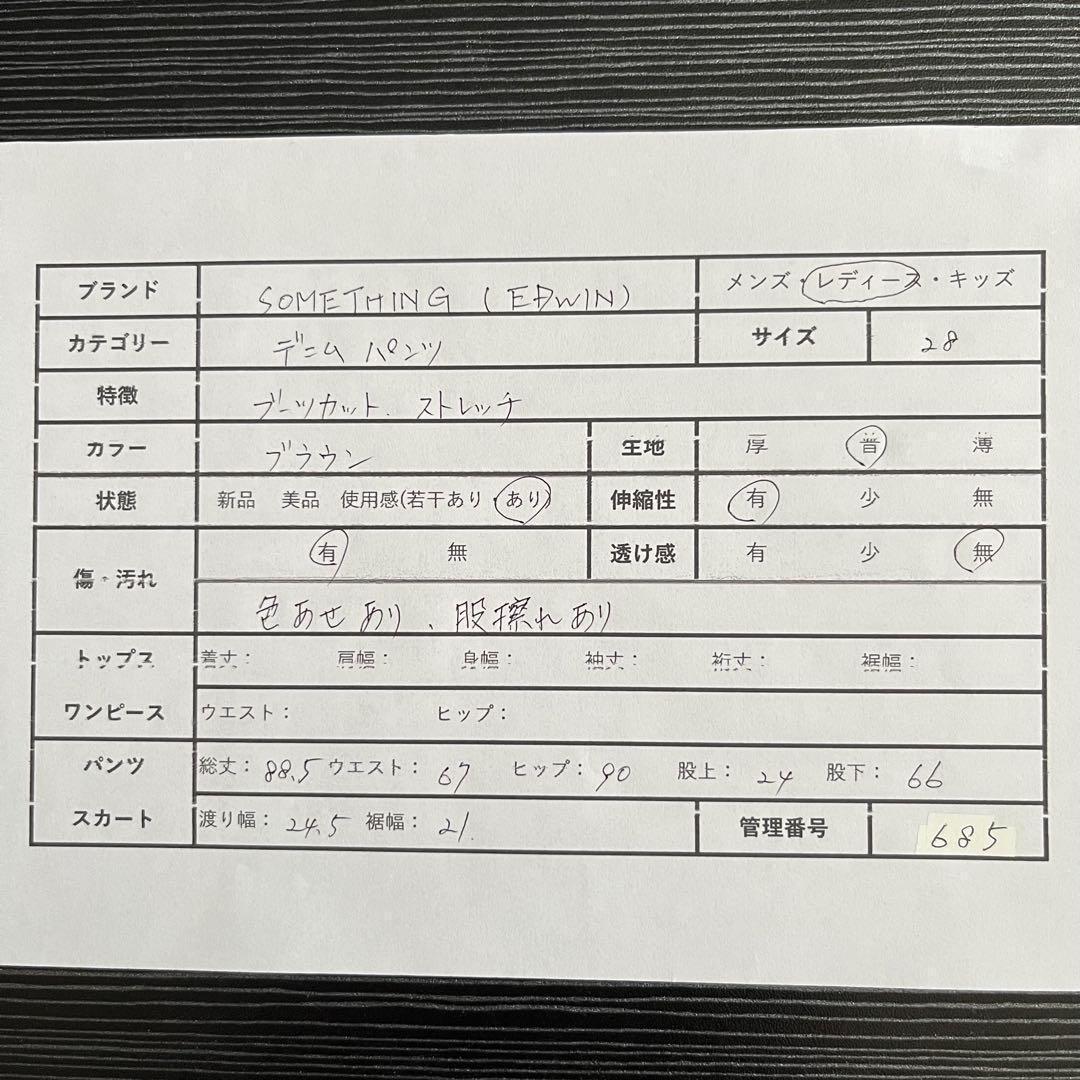 ブランド SOMETHING (EDWIN) メンズ・レディース・キッズ
カテゴリー デニム パンツ サイズ 28
特徴 ブーツカット、ストレッチ
カラー ブラウン 生地 厚 普 薄
状態 新品 美品 使用感(若干あり・あり) 伸縮性 有 少 無
傷・汚れ 有 無 透け感 有 少 無
色あせあり、股擦れあり
トップス 着丈: 肩幅: 身幅: 袖丈: 裄丈: 裾幅:
ワンピース ウエスト: ヒップ:
パンツ 総丈: 88.5 ウエスト: 67 ヒップ: 90 股上: 24 股下: 66
スカート 渡り幅: 24.5 裾幅: 21. 管理番号 685